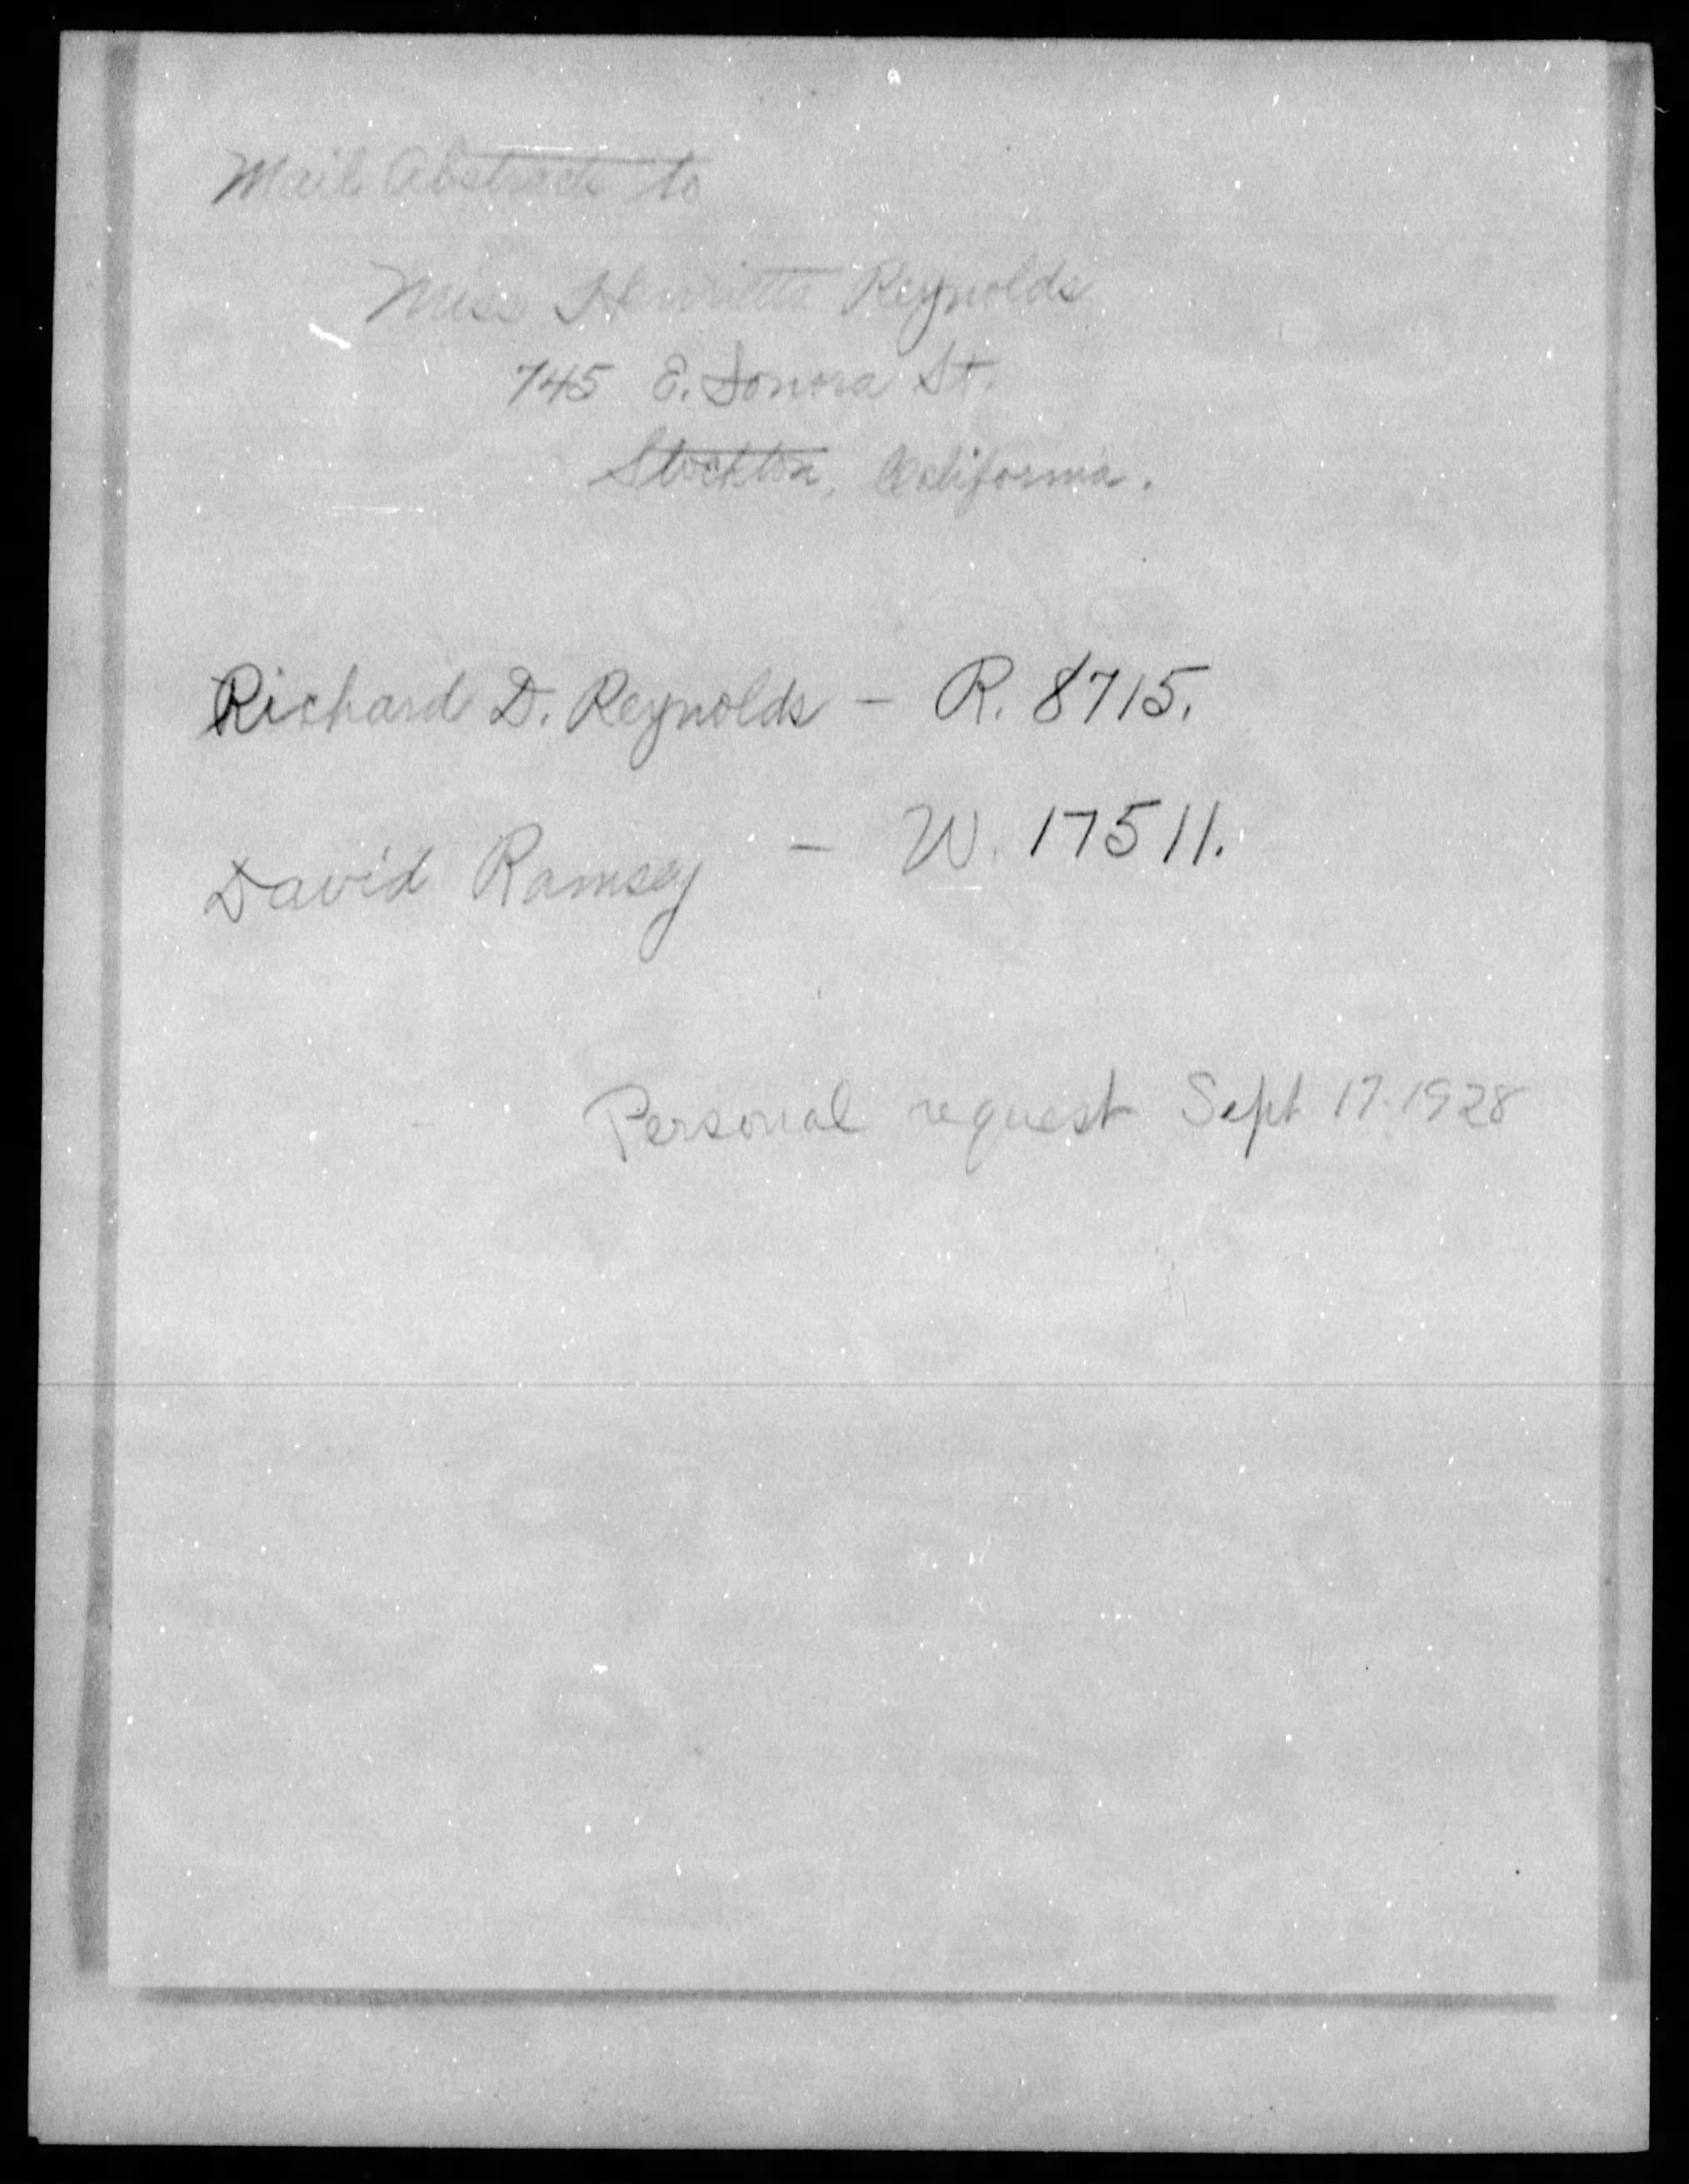 Mail Abstracts to
Miss Henrietta Reynolds
745 E. Sonora St.
Stockton, California.
Richard D. Reynolds - R. 8715.
David Ramsey - W. 17511.
Personal request Sept 17-1928